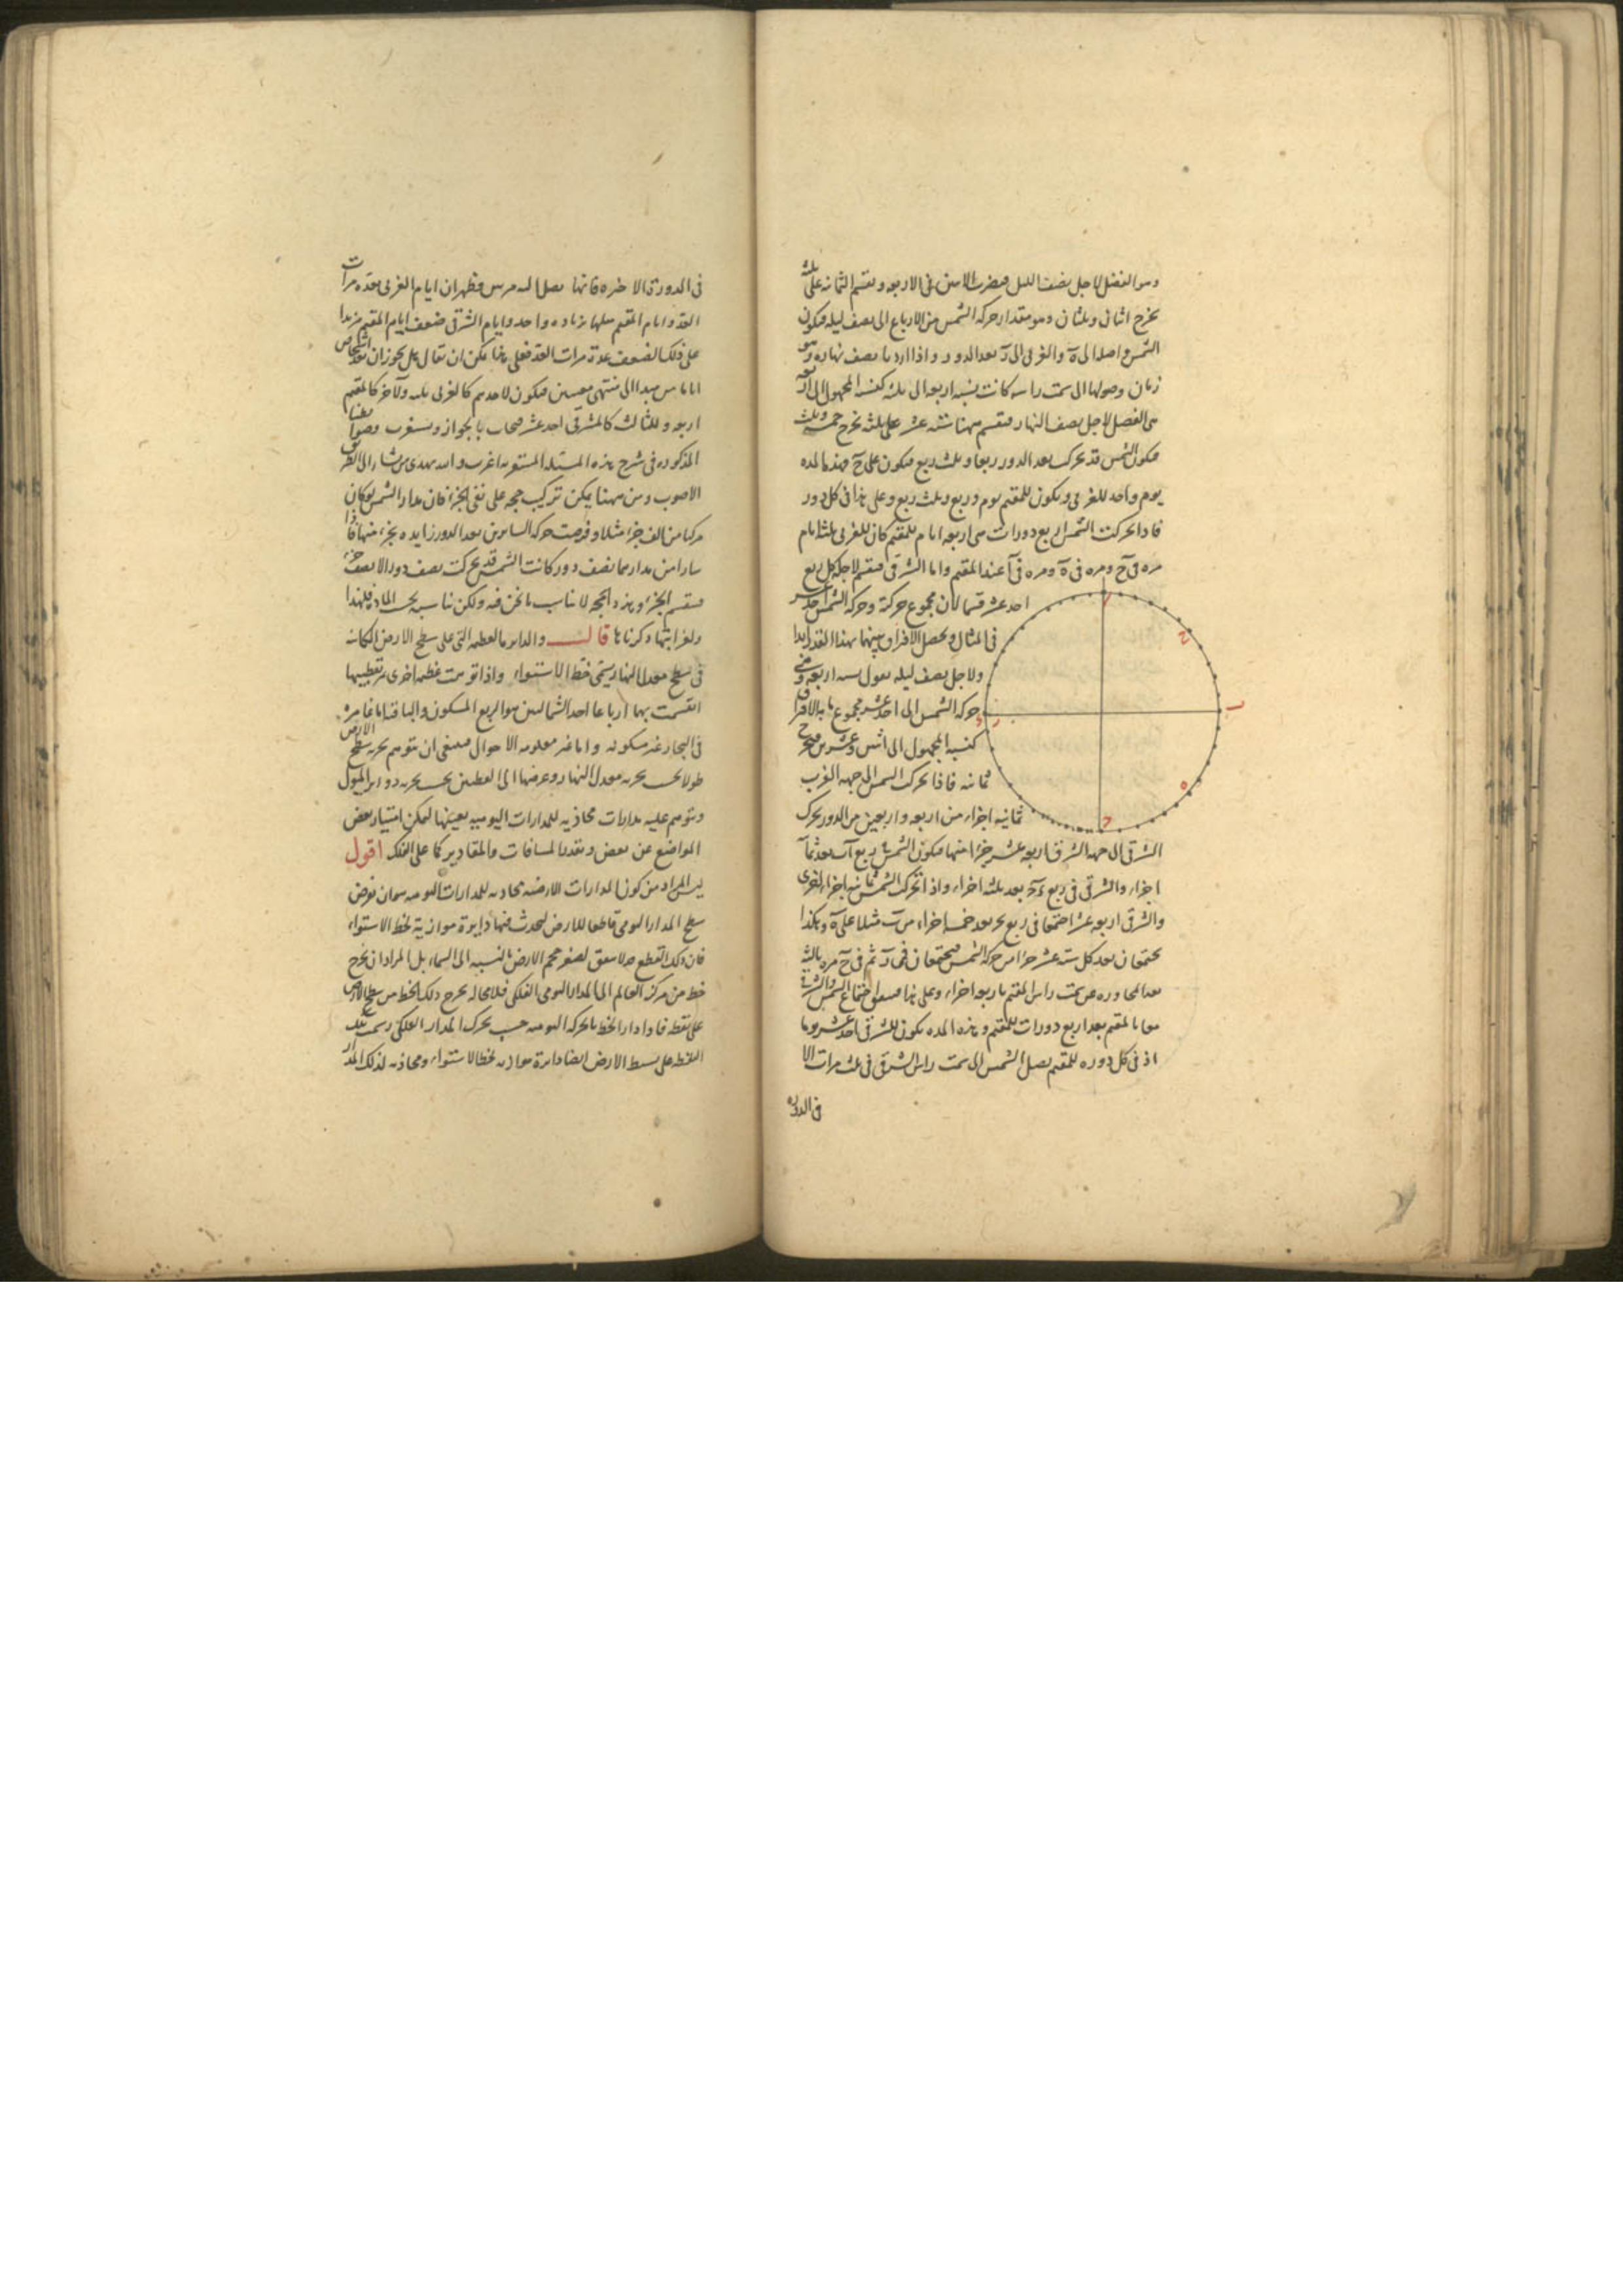 وهو الفضل لاجل نصف الليل فيضرب الاثنين فى الاربعة ونقسم الثمانية على ثلثة
يخرج اثنان وثلثان وهو مقدار حركة الشمس من الارباع الى نصف ليله فيكون
الشمس واصلة الى ه والغربى الى ر بعد الدور واذا اردنا نصف نهاره وهو
زمان وصولها الى سمت راسه كانت نسبة اربعة الى ثلثة كنسبة المجهول الى اربعة
هى الفضل لاجل نصف النهار فنقسم ههنا ستة عشر على ثلثة يخرج خمسة وثلث
فيكون الشمس قد تحركت بعد الدور ربعا وثلث ربع فيكون على ح فهذه المدة
يوم واحد للغربى ويكون للمقيم يوم وربع وثلث ربع وعلى هذا فى كل دور
فاذا تحركت الشمس اربع دورات هى اربعة ايام للمقيم كان للغربى ثلثة ايام
مرة فى ح ومرة فى ه ومرة فى ا عند المقيم واما الشرقى فنقسم لاجله كل ربع
احد عشر قسما لان مجموع حركته وحركة الشمس احد عشر
فى المثال ويحصل الافتراق بينهما بهذا القدر ابدا
ولاجل نصف ليله نقول نسبة اربعة وهى
حركة الشمس الى احد عشر مجموع ما به الافتراق
كنسبة المجهول الى اثنين وعشرين فيخرج
ثمانية فاذا تحركت الشمس الى جهة الغرب
ثمانية اجزاء من اربعة واربعين من الدور تحرك
الشرقى الى جهة الشرق اربعة عشر جزءا منها فيكون الشمس فى ربع اب بعد ثمانية
اجزاء والشرقى فى ربع بعد ثلثة اجزاء واذا تحركت الشمس ثمانية اجزاء اخرى
والشرقى اربعة عشر اجتمعا فى ربع بعد خمسة اجزاء من ب مثلا على ه وهكذا
يجتمعان بعد كل ستة عشر جزءا من حركة الشمس فيجتمعان ثم فى ح مرة ثالثة
بعد المجاوزة عن سمت راس المقيم باربعة اجزاء وعلى هذا فيتفق اجتماع الشمس والشرقى
معا بالمقيم بعد اربع دورات للمقيم وهذه المدة يكون للشرقى احد عشر يوما
اذ فى كل دورة للمقيم يصل الشمس الى سمت راس الشرقى ثلث مرات الا
فى الدورة
ا
ح
ه
ر
فى الدورة الاخيرة فانها يصل اليه مرتين فظهر ان ايام الغربى بعدة مرات
العد وايام المقيم مثلها بزيادة واحد وايام الشرقى ضعف ايام المقيم مزيدا
على ذلك الضعف عدة مرات العد فعلى هذا يمكن ان يقال هل يجوز ان يعد اشخاص
اياما من مبدا الى منتهى معينين فيكون لاحدهم كالغربى ثلثة ولآخر كالمقيم
اربعة وللثالث كالمشرقى احد عشر فيجاب بالجواز ويستغرب وضوابطنا
المذكورة فى شرح هذه المسئلة المستغربة اغرب والله يهدى من يشاء الى الطريق
الاصوب ومن ههنا يمكن تركيب حجة على نفى الجزء فان مدار الشمس لو كان
مركبا من الف جزء مثلا وفرضت حركة السائرين بعد الدور زايدة بجزء منها فاذا
سارا من مدارهما نصف دور كانت الشمس قد تحركت نصف دور الا نصف جزء
فينقسم الجزء وهذه الحجة لا تناسب ما نحن فيه ولكن تناسبه بحسب المادة فلهذا
ولغرابتها ذكرناها قال والدائرة العظيمة التى على سطح الارض الكائنة
فى سطح معدل النهار يسمى خط الاستواء واذا توهمت عظيمة اخرى مر بقطبيها
انقسمت بهما ارباعا احد الشماليين هو الربع المسكون والباقية اما غامرة
فى البحار غير مسكونة واما غير معلومة الاحوال فينبغى ان يتوهم تجزية سطح الارض
طولا بحسب تجزية معدل النهار وعرضها الى القطبين بحسب تجزية دوائر الميول
ويتوهم عليه مدارات محاذية للمدارات اليومية بعينها ليمكن امتياز بعض
المواضع عن بعض وتقدير المسافات والمقادير كما على الفلك اقول
ليس المراد من كون المدارات الارضية محاذية للمدارات اليومية هو ان نفرض
سطح المدار اليومى قاطعا للارض ليحدث فيها دايرة موازية لخط الاستواء
فان ذلك القطع لصغر حجم الارض بالنسبة الى السماء بل المراد ان يخرج
خط من مركز العالم الى المدار اليومى الفلكى فلا محالة يخرج ذلك الخط من سطح الارض
على نقطة فاذا دار الخط بالحركة اليومية حسب تحرك المدار الفلكى رسمت تلك
النقطة على بسيط الارض ايضا دايرة موازية لخط الاستواء ومحاذية لذلك المدار